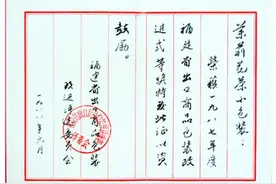 茉莉花茶小包装：
荣获一九八七年度
福建省出口商品包装改
进弍等奖特发此证以资
鼓励。
福建省出口商品包装
改进评选委员会
一九八八年六月